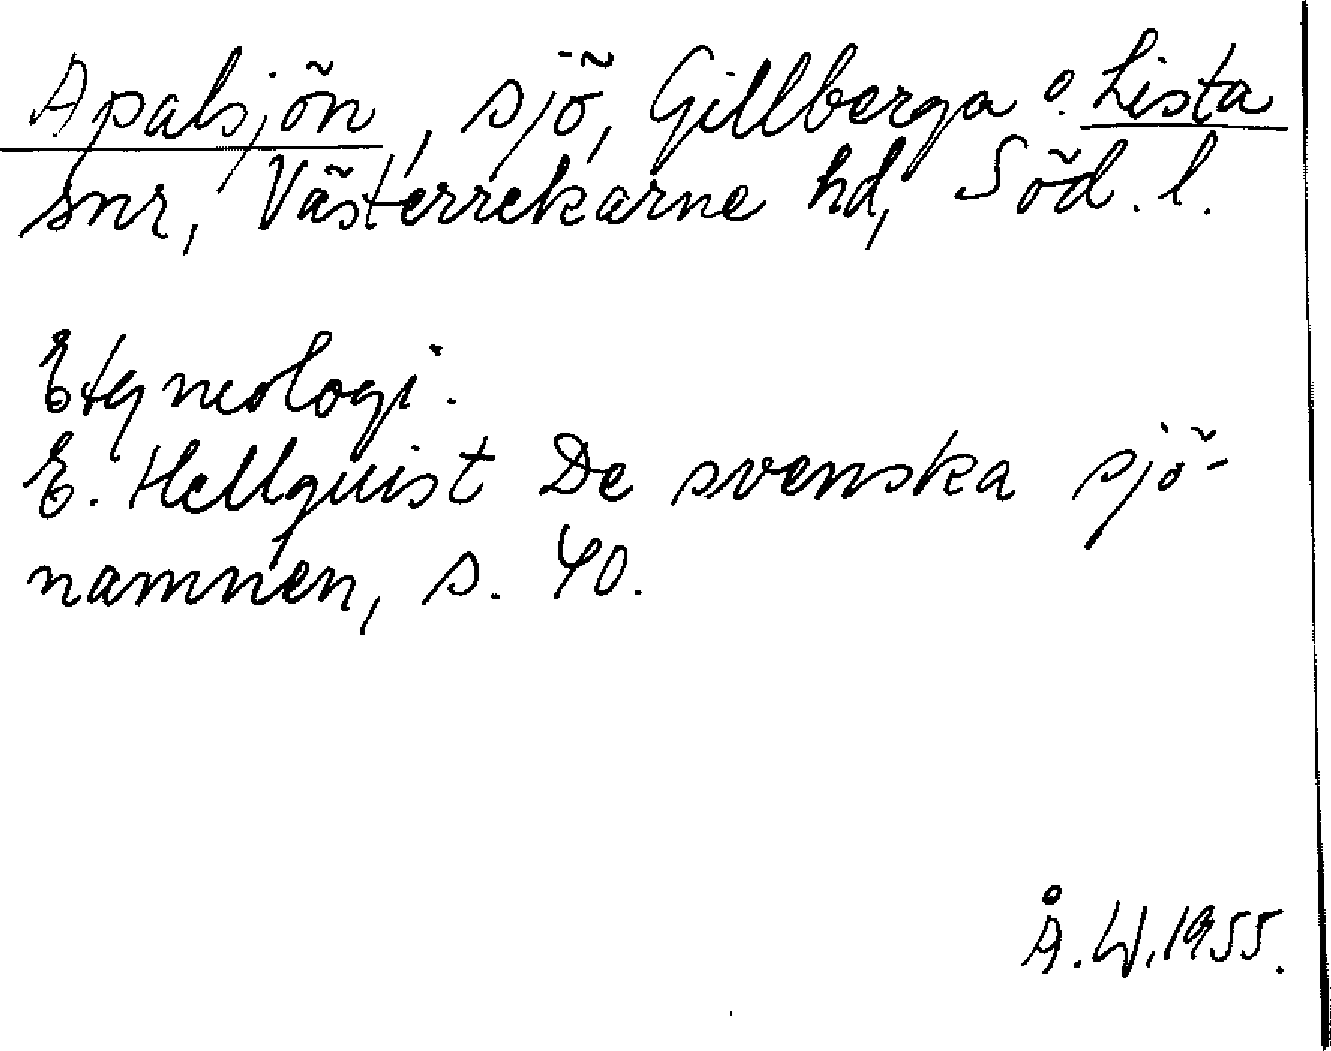 Apalsjön, sjö, Gillberga o. Lista
snr, Västerrekarne hd, Söd. l.
Etymologi.
E. Hellquist De svenska sjö-
namnen, s. 40.
Å. W. 1955.